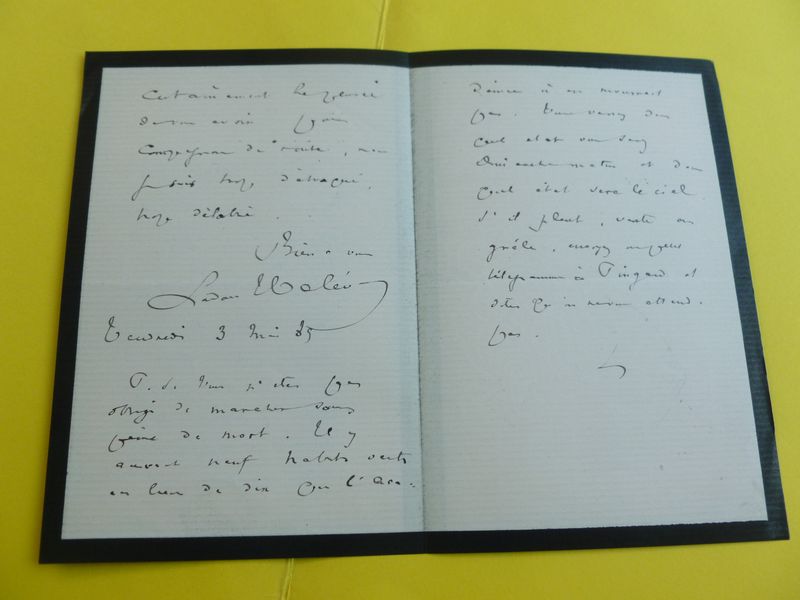 Certainement
de m'avoir pour
Compagnon de route, mais
je suis trop détraqué,
trop délabré.
Bien à vous
Ludovic Halévy
Vendredi 3 Mai 85
P. S. Vous n'êtes pas
obligé de marcher sous
peine de mort. Il y
aurait neuf habits verts
au lieu de dix que l'Aca-
démie n'en mourrait
pas. Vous verrez dans
quel état vous serez
Dimanche matin et dans
quel état sera le ciel.
S'il pleut, vente ou
grêle, envoyez un petit
télégramme à Pingard et
dites qu'on ne vous attende
pas.